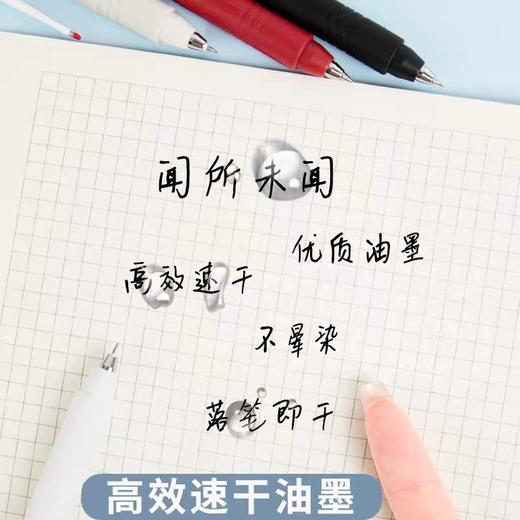 闻所未闻
优质油墨
高效速干
不晕染
落笔即干
高效速干油墨